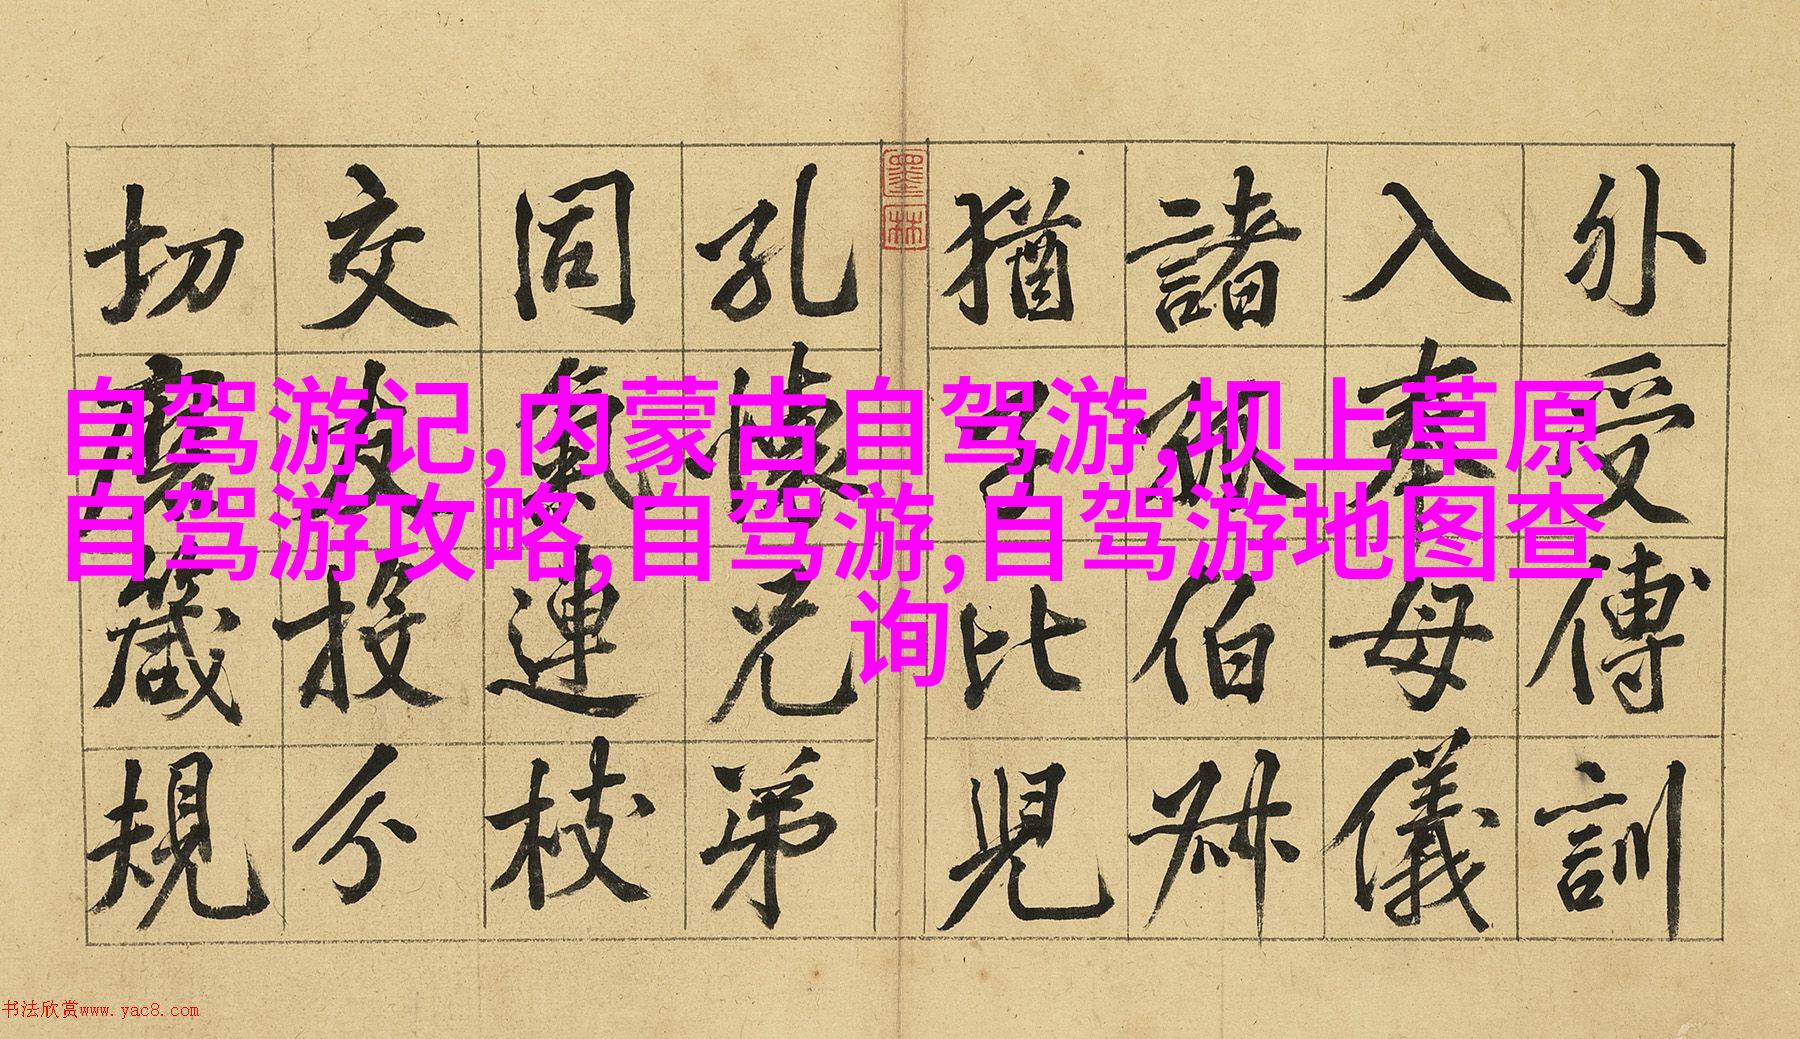 外受傅訓
入奉母儀
諸姑伯叔
猶子比兒
墨林
孔懷兄弟
同氣連枝
交友投分
切磨箴規
自驾游记,内蒙古自驾游,坝上草原
自驾游攻略,自驾游,自驾游地图查
询
书法欣赏www.yac8.com